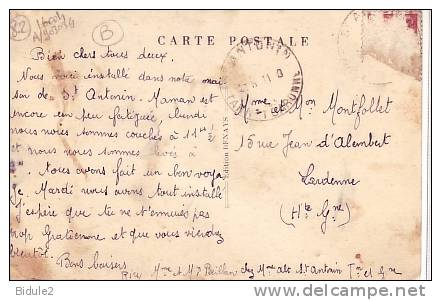 82
B
CARTE POSTALE
ANTONIN
Bien chers tous deux.
Nous voici installé dans notre mai
son de St Antonin. Maman est
encore un peu fatiguée, lundi
nous nous sommes couchés à 11 h ½
et nous nous sommes levés à
Nous avons fait un bon voya
ge. Mardi nous avons tout installé
J'espère que tu ne t'ennuies pas
trop Gratienne et que vous viendrez
bientôt.
Bons baisers
Mme et Mr
chez Mme
St Antonin T. et G.
Edition DENAYS
Mme et Mon Montfollet
15 rue Jean d'Alembert
Lardenne
(Hte Gne)
Bidule2
delcampe.net